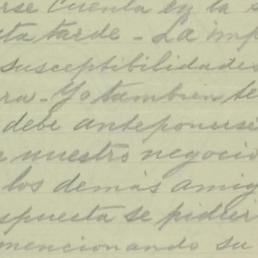 rse cuenta en la s
sta tarde - La imp
susceptibilidades
ra - Yo tambien te
debe anteponerse
nuestro negocio
los demás amig
spuesta se pidier
mencionando su